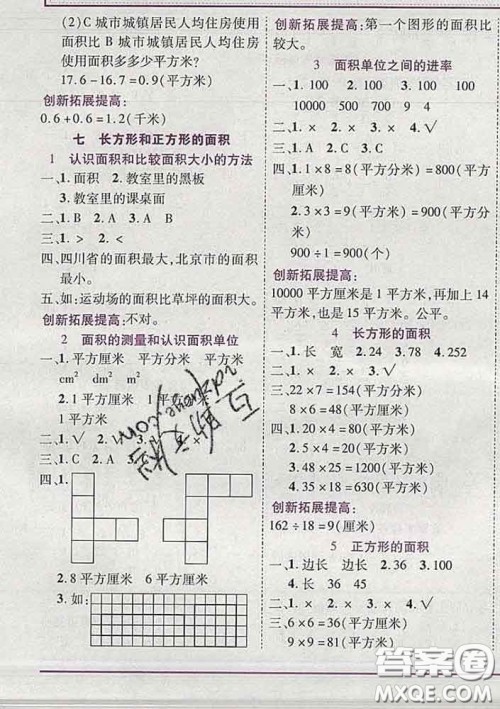 (2)C 城市城镇居民人均住房使用
面积比 B 城市城镇居民人均住房
使用面积多多少平方米?
17.6-16.7=0.9(平方米)
创新拓展提高:
0.6+0.6=1.2(千米)
七 长方形和正方形的面积
1 认识面积和比较面积大小的方法
一、1.面积 2.教室里的黑板
3.教室里的课桌面
二、1.B 2.A 3.A B
三、1.> 2.<
四、四川省的面积最大,北京市的面积
最小。
五、如:运动场的面积比草坪的面积大。
创新拓展提高:不对。
2 面积的测量和认识面积单位
一、1.平方厘米 平方分米 平方米
cm² dm² m²
2.1平方厘米 1平方分米
1平方米
二、1.√
三、1.C 2.A
四、1.
2.8平方厘米 6平方厘米
3.如:
创新拓展提高: 第一个图形的面积比
较大。
3 面积单位之间的进率
一、1.100 2.100 3.100 100
10000 500 700 9 4
二、1.× 2.× 3.× 4.√
三、1.< 2.> 3.> 4.=
四、1.1×8=8(平方分米)=800(平
方厘米)
2.3×3=9(平方分米)=900(平
方厘米)
900÷1=900(块)
创新拓展提高:
10000平方厘米是1平方米,再加上14
平方米,也是15平方米。公平。
4 长方形的面积
一、1.长 宽 2.24 3.78 4.252
二、1.× 2.× 3.× 4.√
三、22×7=154(平方分米)
8×4=32(平方厘米)
四、1.20×4=80(平方米)
2.5×4=20(平方米)
3.48×25=1200(平方米)
4.35×18=630(平方米)
创新拓展提高:
162÷18=9(厘米)
5 正方形的面积
一、1.边长 边长 2.36 3.100
4.长 36
二、1.× 2.× 3.× 4.√
三、6×6=36(平方厘米)
9×9=81(平方分米)
答案圈
MXQE.COM